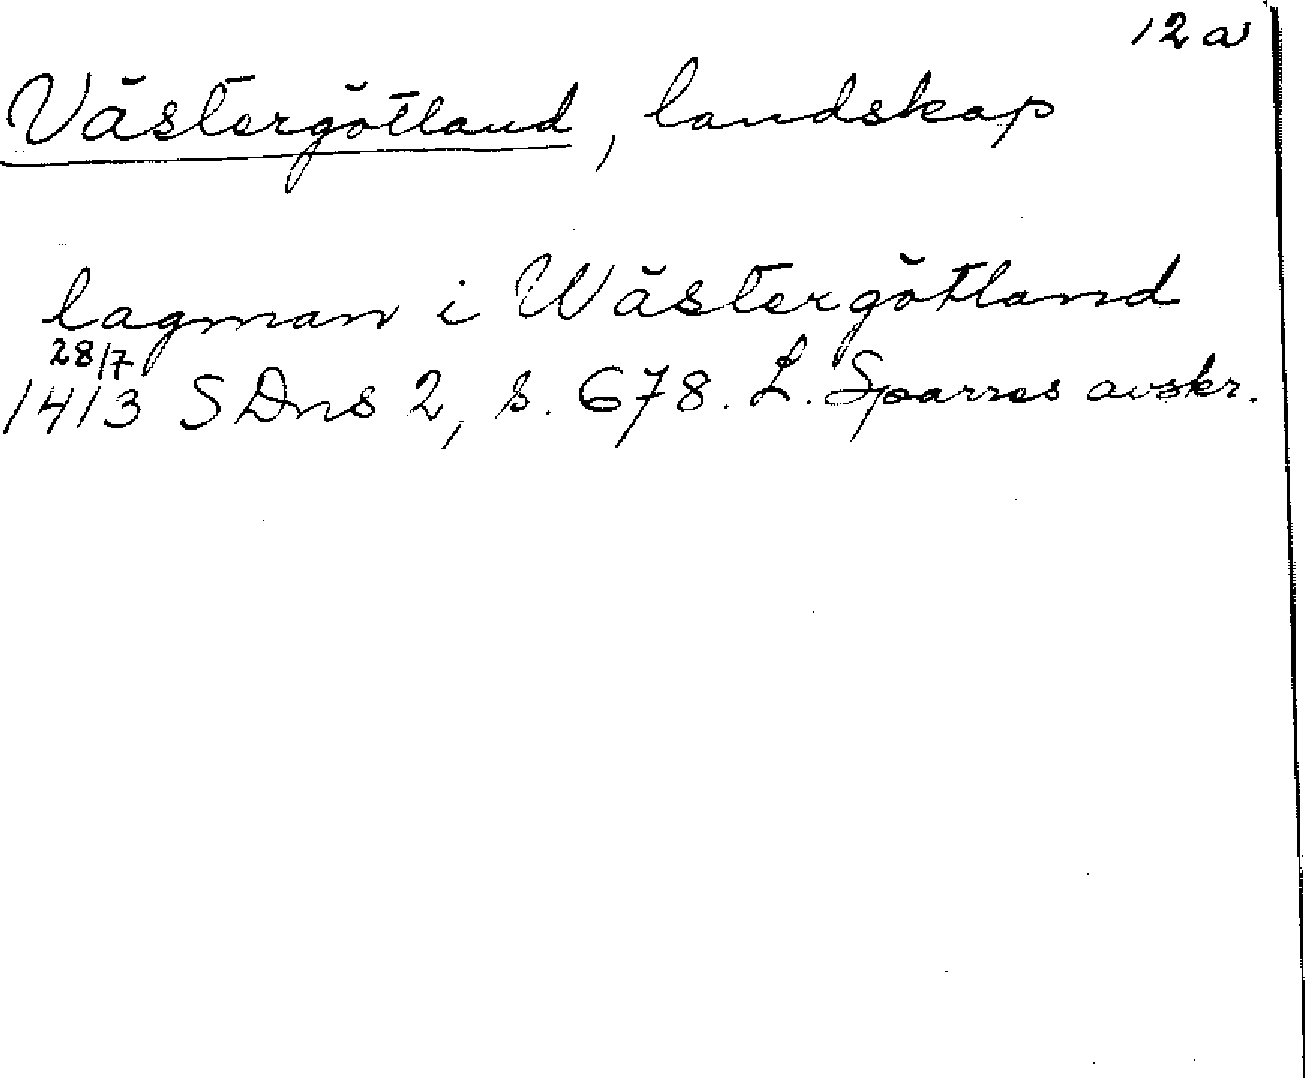 12a
Västergötland, landskap
lagman i Wästergötland
28/7
1413 SDns 2, s. 678. L. Sparres avskr.